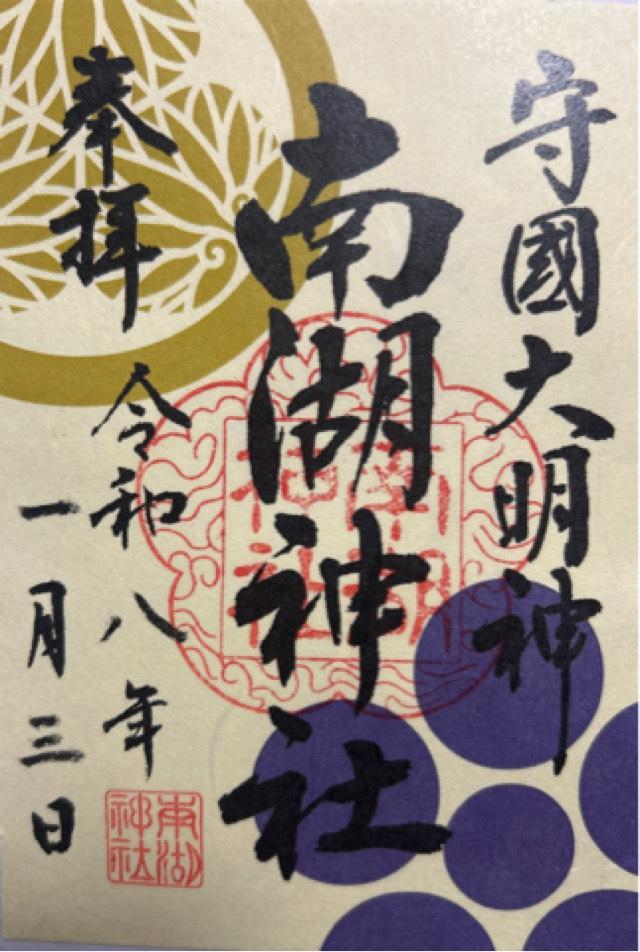 守國大明神
南湖神社
奉拝
令和八年
一月三日
南湖神社
南湖神社